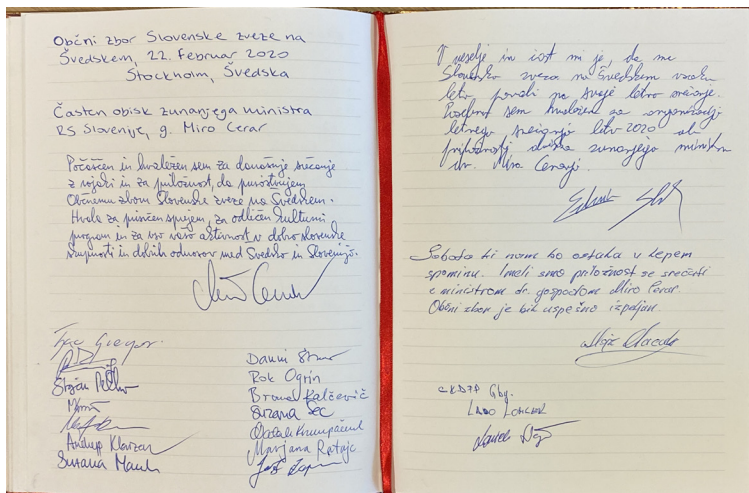 Občni zbor Slovenske zveze na
Švedskem, 22. februar 2020
Stockholm, Švedska
Časten obisk zunanjega ministra
RS Slovenije, g. Miro Cerar
Počaščen in hvaležen sem za današnje srečanje
z rojaki in za priložnost, da prisostvujem
Občnemu zboru Slovenske zveze na Švedskem.
Hvala za prisrčen sprejem, za odličen kulturni
program in za vso vašo aktivnost v dobro slovenske
skupnosti in dobrih odnosov med Švedsko in Slovenijo.
Gregor
Štefan
Andreja Klavžar
Suzana
Danni
Rok Ogrin
Brane Kalčevič
Suzana Šec
Marjana Ratajc
V veselje in čast mi je, da me
Slovenska zveza na Švedskem vsako
leto povabi na svoje letno srečanje.
Posebno sem hvaležen za organizacijo
letnega srečanja leta 2020 ob
priložnosti obiska zunanjega ministra
dr. Mira Cerarja.
Sobota bi nam bo ostala v lepem
spominu. Imeli smo priložnost se srečati
z ministrom dr. gospodom Miro Cerar.
Občni zbor je bil uspešno izpeljan.
Lado